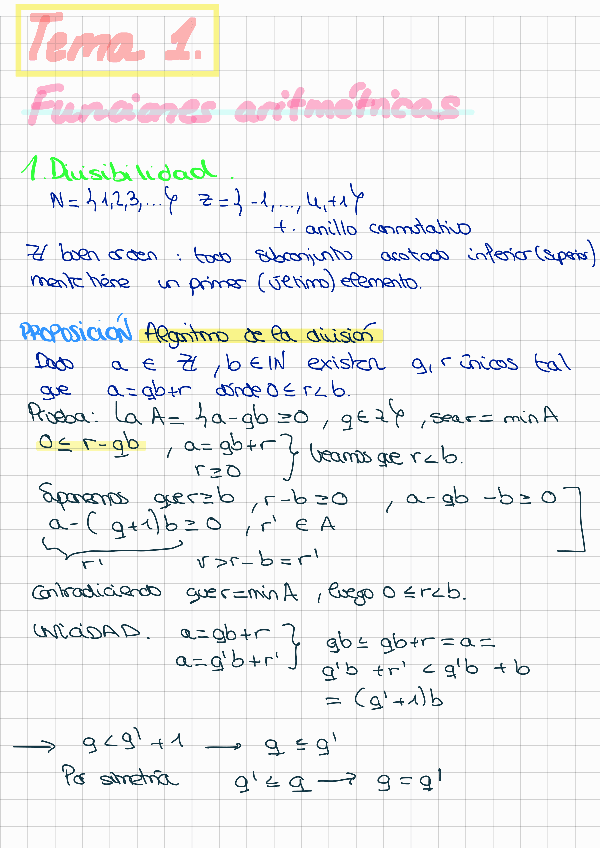 Tema 1.
Funciones aritmétricas
1. Divisibilidad.
N = {1,2,3,...} Z = {-1,..., +1}
+· anillo conmutativo
Z buen orden : todo subconjunto acotado inferior (superior)
mente tiene un primer (último) elemento.
PROPOSICIÓN Algoritmo de la división
Dado a ∈ Z, b ∈ IN existen q, r únicos tal
que a = qb + r donde 0 ≤ r < b.
Prueba: A = {a - qb ≥ 0, q ∈ Z}, sea r = min A
0 ≤ r - qb , a = qb + r
r ≥ 0 } Veamos que r < b.
Suponemos que r ≥ b , r - b ≥ 0 , a - qb - b ≥ 0
a - (q+1)b ≥ 0 , r' ∈ A
r' r > r - b = r'
Contradiciendo que r = min A , luego 0 ≤ r < b.
UNICIDAD. a = qb + r
a = q'b + r' } qb ≤ qb + r = a =
q'b + r' < q'b + b
= (q' + 1)b
→ q < q' + 1 → q ≤ q'
Por simetría q' ≤ q → q = q'